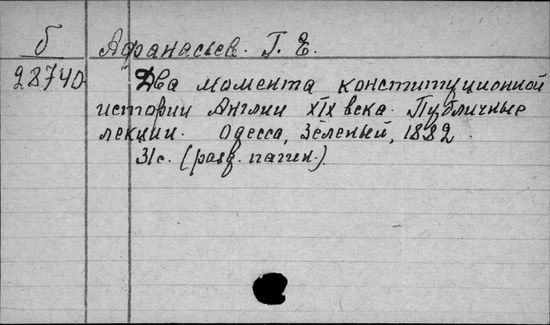 б
28740
Афанасьев. Г. Е.
Два момента конституционной
истории Англии XIX века. Публичные
лекции. Одесса, Зеленый, 1882.
31с. (разд. пагин.)